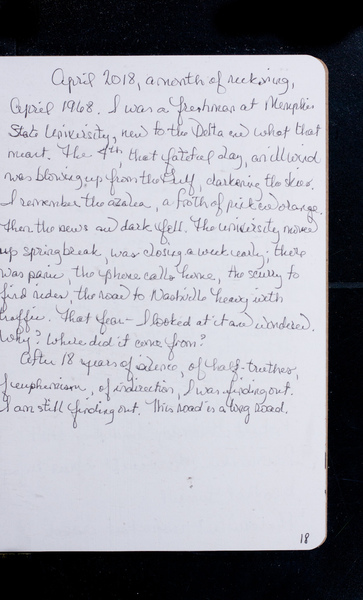 April 2018, a month of reckoning,
April 1968. I was a freshman at Memphis
State University, new to the Delta and what that
meant. The 4th, that fateful day, an ill wind
was blowing up from the Gulf, darkening the skies.
I remember the azalea, a froth of pink and orange.
Then the news and dark fell. The University moved
up spring break, was closing a week early; there
was panic, the phone calls home, the scurry to
find rides, the road to Nashville heavy with
traffic. That fear – I looked at it and wondered.
Why? Where did it come from?
After 18 years of silence, of half-truths,
of euphemism, of indirection, I was finding out.
I am still finding out. This road is a long road.
18